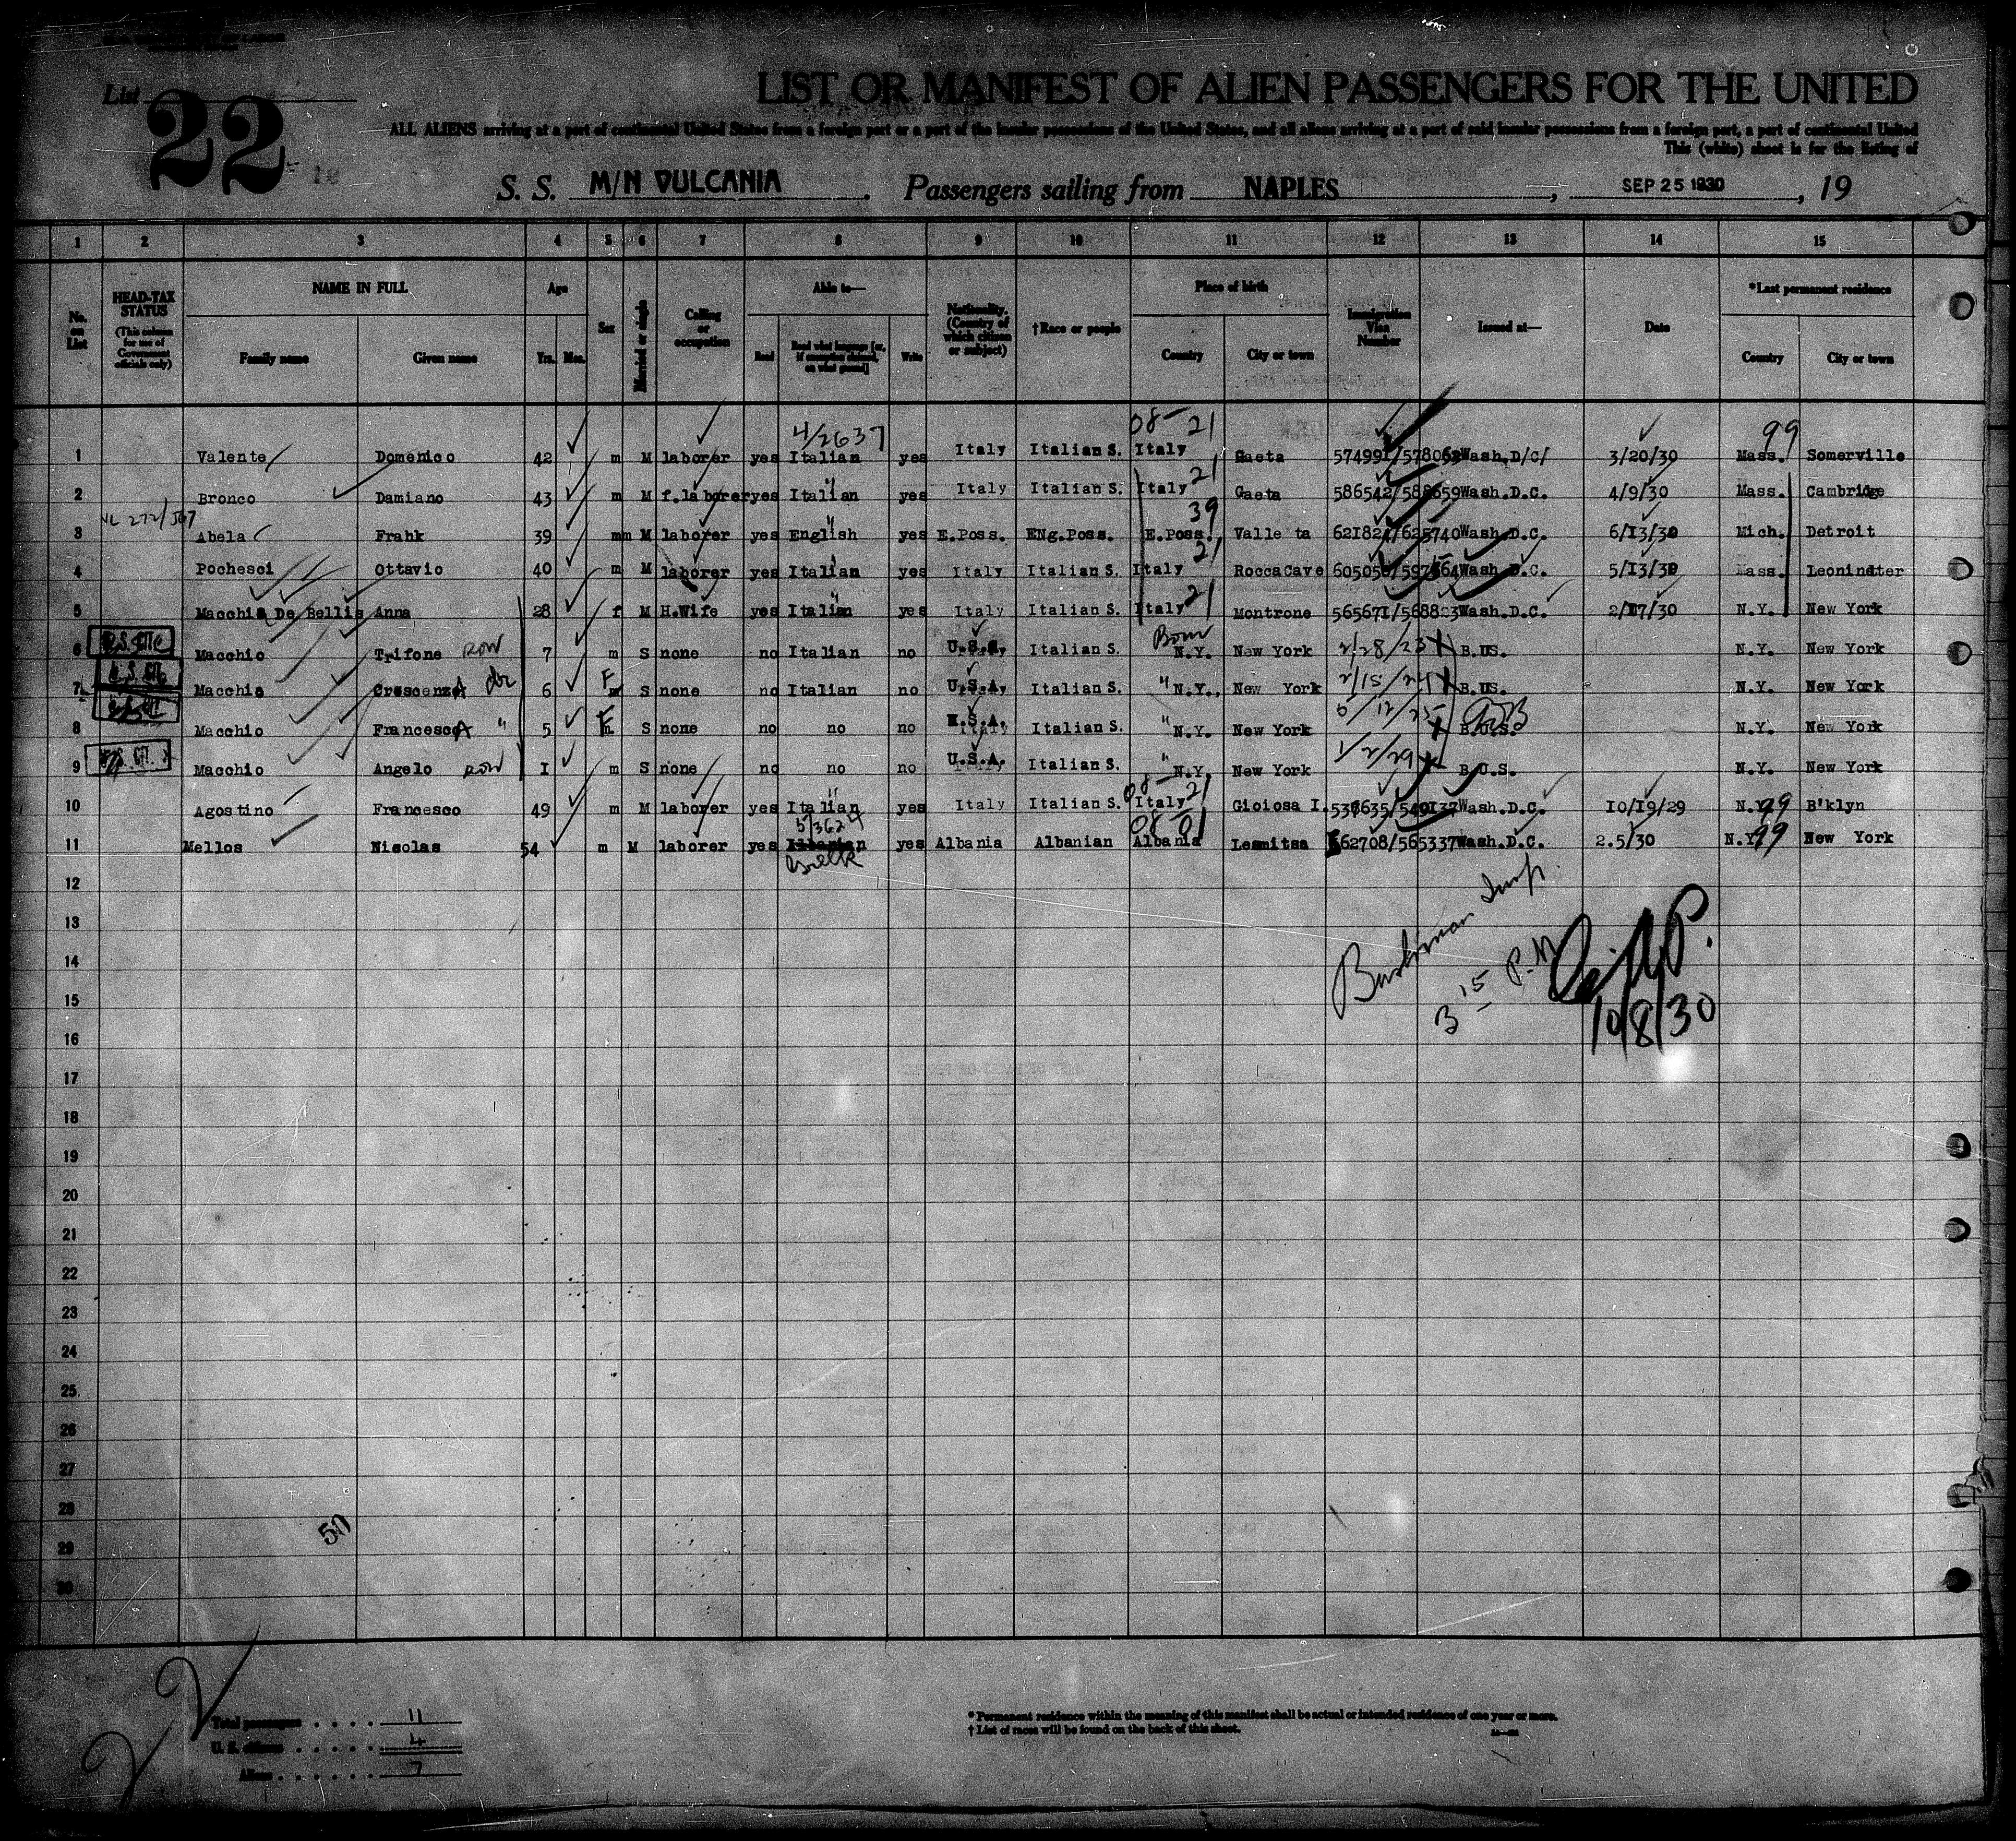 List
22
LIST OR MANIFEST OF ALIEN PASSENGERS FOR THE UNITED
ALL ALIENS arriving at a port of continental United States from a foreign port or a port of the insular possessions of the United States, and all aliens arriving at a port of said insular possessions from a foreign port, a port of continental United
This (white) sheet is for the listing of
S. S. M/N VULCANIA. Passengers sailing from NAPLES, SEP 25 1930, 19
1 2 3 4 5 6 7 8 9 10 11 12 13 14 15
No. on List HEAD-TAX STATUS (This column for use of Government officials only) NAME IN FULL Family name Given name Age Yrs. Mos. Sex Married or single Calling or occupation Able to— Read Read what language [or, if exemption claimed, on what ground] Write Nationality. (Country of which citizen or subject) †Race or people Place of birth Country City or town Immigration Visa Number Issued at— Date *Last permanent residence Country City or town
4/2637 08- 21 99
1 Valente Domenico 42 m M laborer yes Italian yes Italy Italian S. Italy Gaeta 574991/578062 Wash.D/C/ 3/20/30 Mass. Somerville
2 Bronco Damiano 43 m M f.laborer yes Italian yes Italy Italian S. Italy 21 Gaeta 586542/588659 Wash.D.C. 4/9/30 Mass. Cambridge
3 Abela Frahk 39 mm M laborer yes English yes E.Poss. ENg.Poss. E.Poss. 39 Valle ta Wash.D.C. 6/13/30 Mich. Detroit
4 Pochesci Ottavio 40 m M laborer yes Italian yes Italy Italian S. Italy 21 RoccaCave Wash.D.C. 5/13/30 Mass. Leominster
5 Macchia De Bellis Anna 28 f M H.Wife yes Italian yes Italy Italian S. Italy 21 Montrone 565671/568823 Wash.D.C. 2/17/30 N.Y. New York
6 Macchio Trifone 7 m S none no Italian no U.S.A. Italian S. Born N.Y. New York 2/28/23 X B.US. N.Y. New York
7 Macchia Crescenza 6 F S none no Italian no U.S.A. Italian S. " N.Y., New York 2/15/24 X B.US. N.Y. New York
8 Macchio Francesca " 5 F S none no no no U.S.A. Italian S. " N.Y. New York 6/12/25 X B.U.S. N.Y. New York
9 Macchio Angelo 1 m S none no no no U.S.A. Italian S. " N.Y. New York 1/2/29 X B.U.S. N.Y. New York
10 Agostino Francesco 49 m M laborer yes Italian yes Italy Italian S. 08- Italy 21 Gioiosa I. 537635/549137 Wash.D.C. 10/19/29 N.Y. 99 B'klyn
11 Mellos Nicolas 54 m M laborer yes yes Albania Albanian Albania Lesnitsa 562708/565337 Wash.D.C. 2.5/30 N.Y. 99 New York
12
Bushman Insp.
13
14
3 15 P.M
15
10/8/30
16
17
18
19
20
21
22
23
24
25
26
27
28
50
29
30
Total passengers . . . . 11
U. S. citizens . . . . . 4
Aliens . . . . . . 7
* Permanent residence within the meaning of this manifest shall be actual or intended residence of one year or more.
† List of races will be found on the back of this sheet.